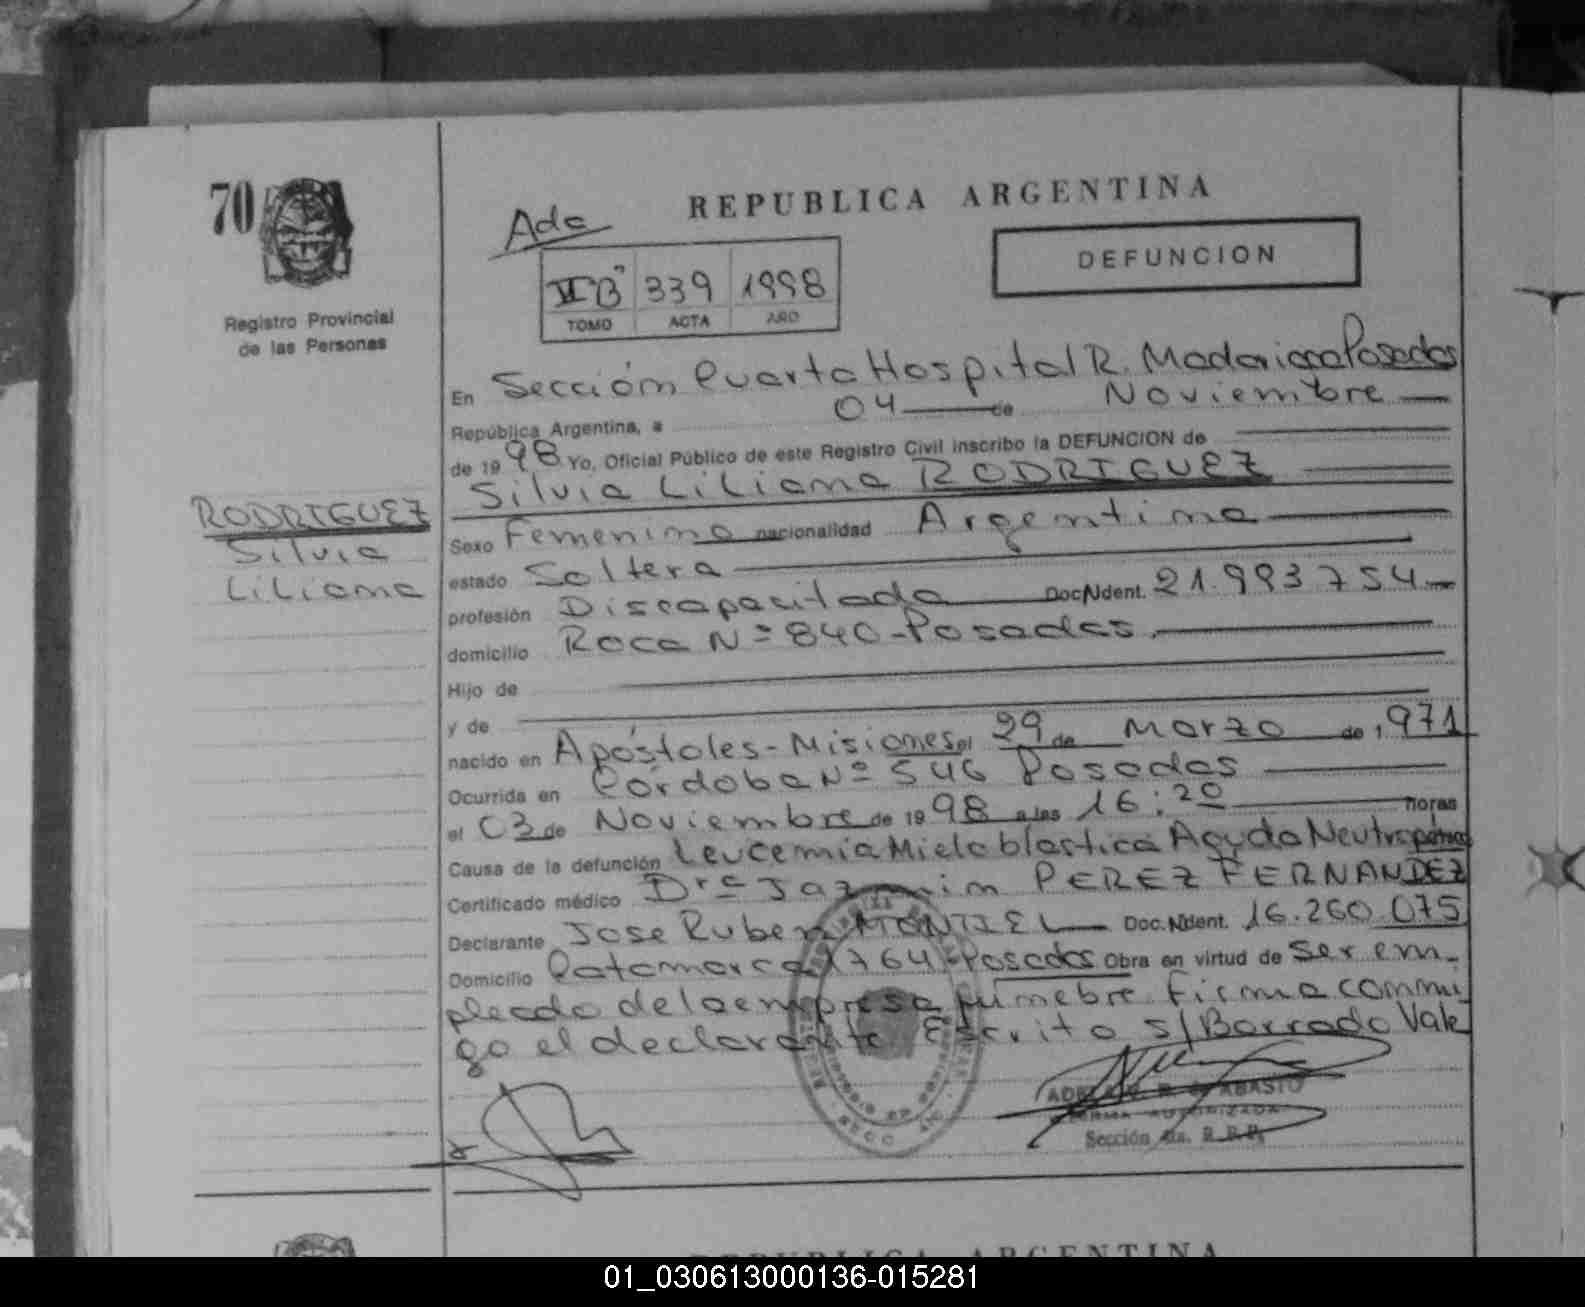 70
Registro Provincial
de las Personas
RODRIGUEZ
Silvia
Liliana
REPUBLICA ARGENTINA
Ada
DEFUNCION
339 1998
TOMO ACTA AÑO
En Sección Cuarta Hospital R. Madariaga Posadas
República Argentina, a 04 de Noviembre
de 1998 Yo, Oficial Público de este Registro Civil inscribo la DEFUNCION de
Silvia Liliana RODRIGUEZ
Sexo Femenino nacionalidad Argentina
estado Soltera
profesión Discapacitada Doc. Ident. 21.993754
domicilio Roca Nº 840-Posadas
Hijo de
y de
nacido en Apóstoles-Misiones el 29 de Marzo de 1.971
Ocurrida en Córdoba Nº 546 Posadas
el 03 de Noviembre de 1998 a las 16:20 horas
Causa de la defunción Leucemia Mieloblástica Aguda
Certificado médico Drª Jazmin PEREZ FERNANDEZ
Declarante Jose Ruben MONTIEL Doc. Ident. 16.260.075
Domicilio Catamarca 1764-Posadas Obra en virtud de ser em-
pleado de la empresa fúnebre. Firma conmi
go el declarante Escrito s/Borrado Vale
ABASTO
FIRMA AUTORIZADA
Sección 4ta. R.P.P.
REPUBLICA ARGENTINA
01_030613000136-015281